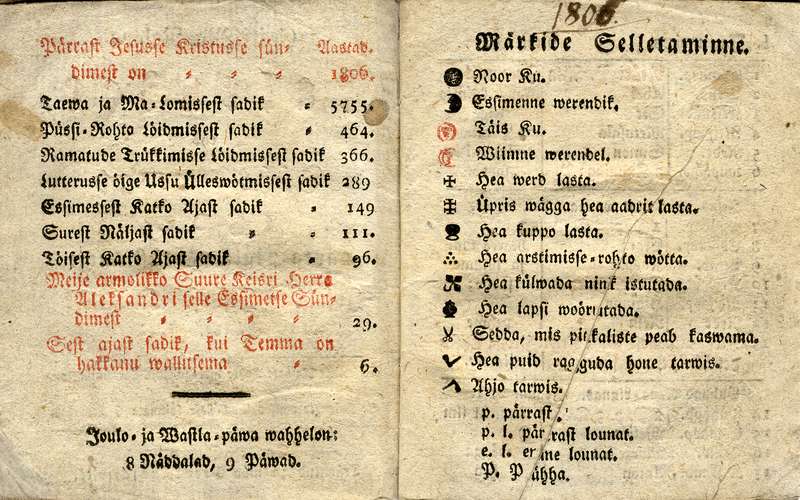 Pärrast Jesusse Kristusse sün- Aastad.
dimest on = = = 1806.
Taewa ja Ma-Lomissest sadik = 5755.
Püssi-Rohto Löidmissest sadik = 464.
Ramatude Trükkimisse Löidmissest sadik 366.
Lutterusse öige Ussu Ülleswötmissest sadik 289
Essimessest Katko Ajast sadik = 149
Surest Näljast sadik = = 111.
Töisest Katko Ajast sadik = 96.
Meije armolikko Suure Keisri Herra
Aleksandri selle Essimeise Sün-
dimest = = = = 29.
Sest ajast sadik, kui Temma on
hakkanu wallitsema = 6.
Joulo- ja Wastla-päwa wahhelon:
8 Näddalad, 9 Päwad.
1806.
Märkide Selletaminne.
Noor Ku.
Essimenne werendik.
Täis Ku.
Wiimne werendel.
Hea werd lasta.
Üpris wägga hea aadrit lasta.
Hea kuppo lasta.
Hea arstimisse-rohto wötta.
Hea külwada nink istutada.
Hea lapsi woörutada.
Sedda, mis pitkaliste peab kaswama.
Hea puid raguda hone tarwis.
Ahjo tarwis.
p. pärrast.
p. l. pärrast lounat.
e. l. enne lounat.
P. Pühha.